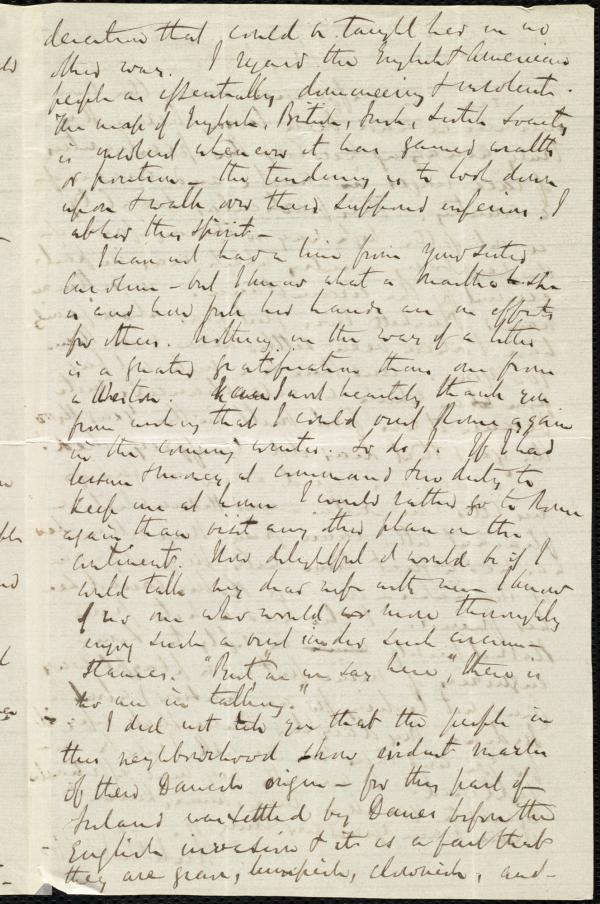 that could be taught her in no
other way. I regard the English & American
people as essentially domineering & insolent.
The mass of English, British, Irish, Scotch Society
is insolent whenever it has gained wealth
or position — the tendency is to look down
upon & walk over their supposed inferiors. I
abhor this spirit —
I have not had a line from your sister
Caroline — but I know what a Martha she
is and how full her hands are in efforts
for others. Nothing in the way of a letter
is a greater gratification than one from
a Weston. I most heartily thank you
from wishing that I could visit Rome again
in the coming winter. So do I. If I had
leisure & money at command & no duty to
keep me at home I would rather go to Rome
again than visit any other place on the
continent. How delightful it would be if I
could take my dear wife with me. I know
of no one who would more thoroughly
enjoy such a visit under such circum-
stances. "But" as we say here, "there is
no use in talking."
I did not tell you that the people in
this neighbourhood show evident marks
of their Danish origin — for this part of
Ireland was settled by Danes before the
English invasion & it is a fact that
they are grave, lumpish, clownish, and -